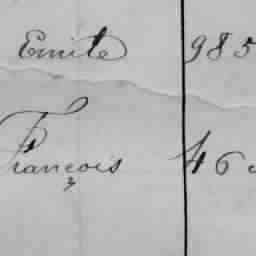 Emile 985
François 46